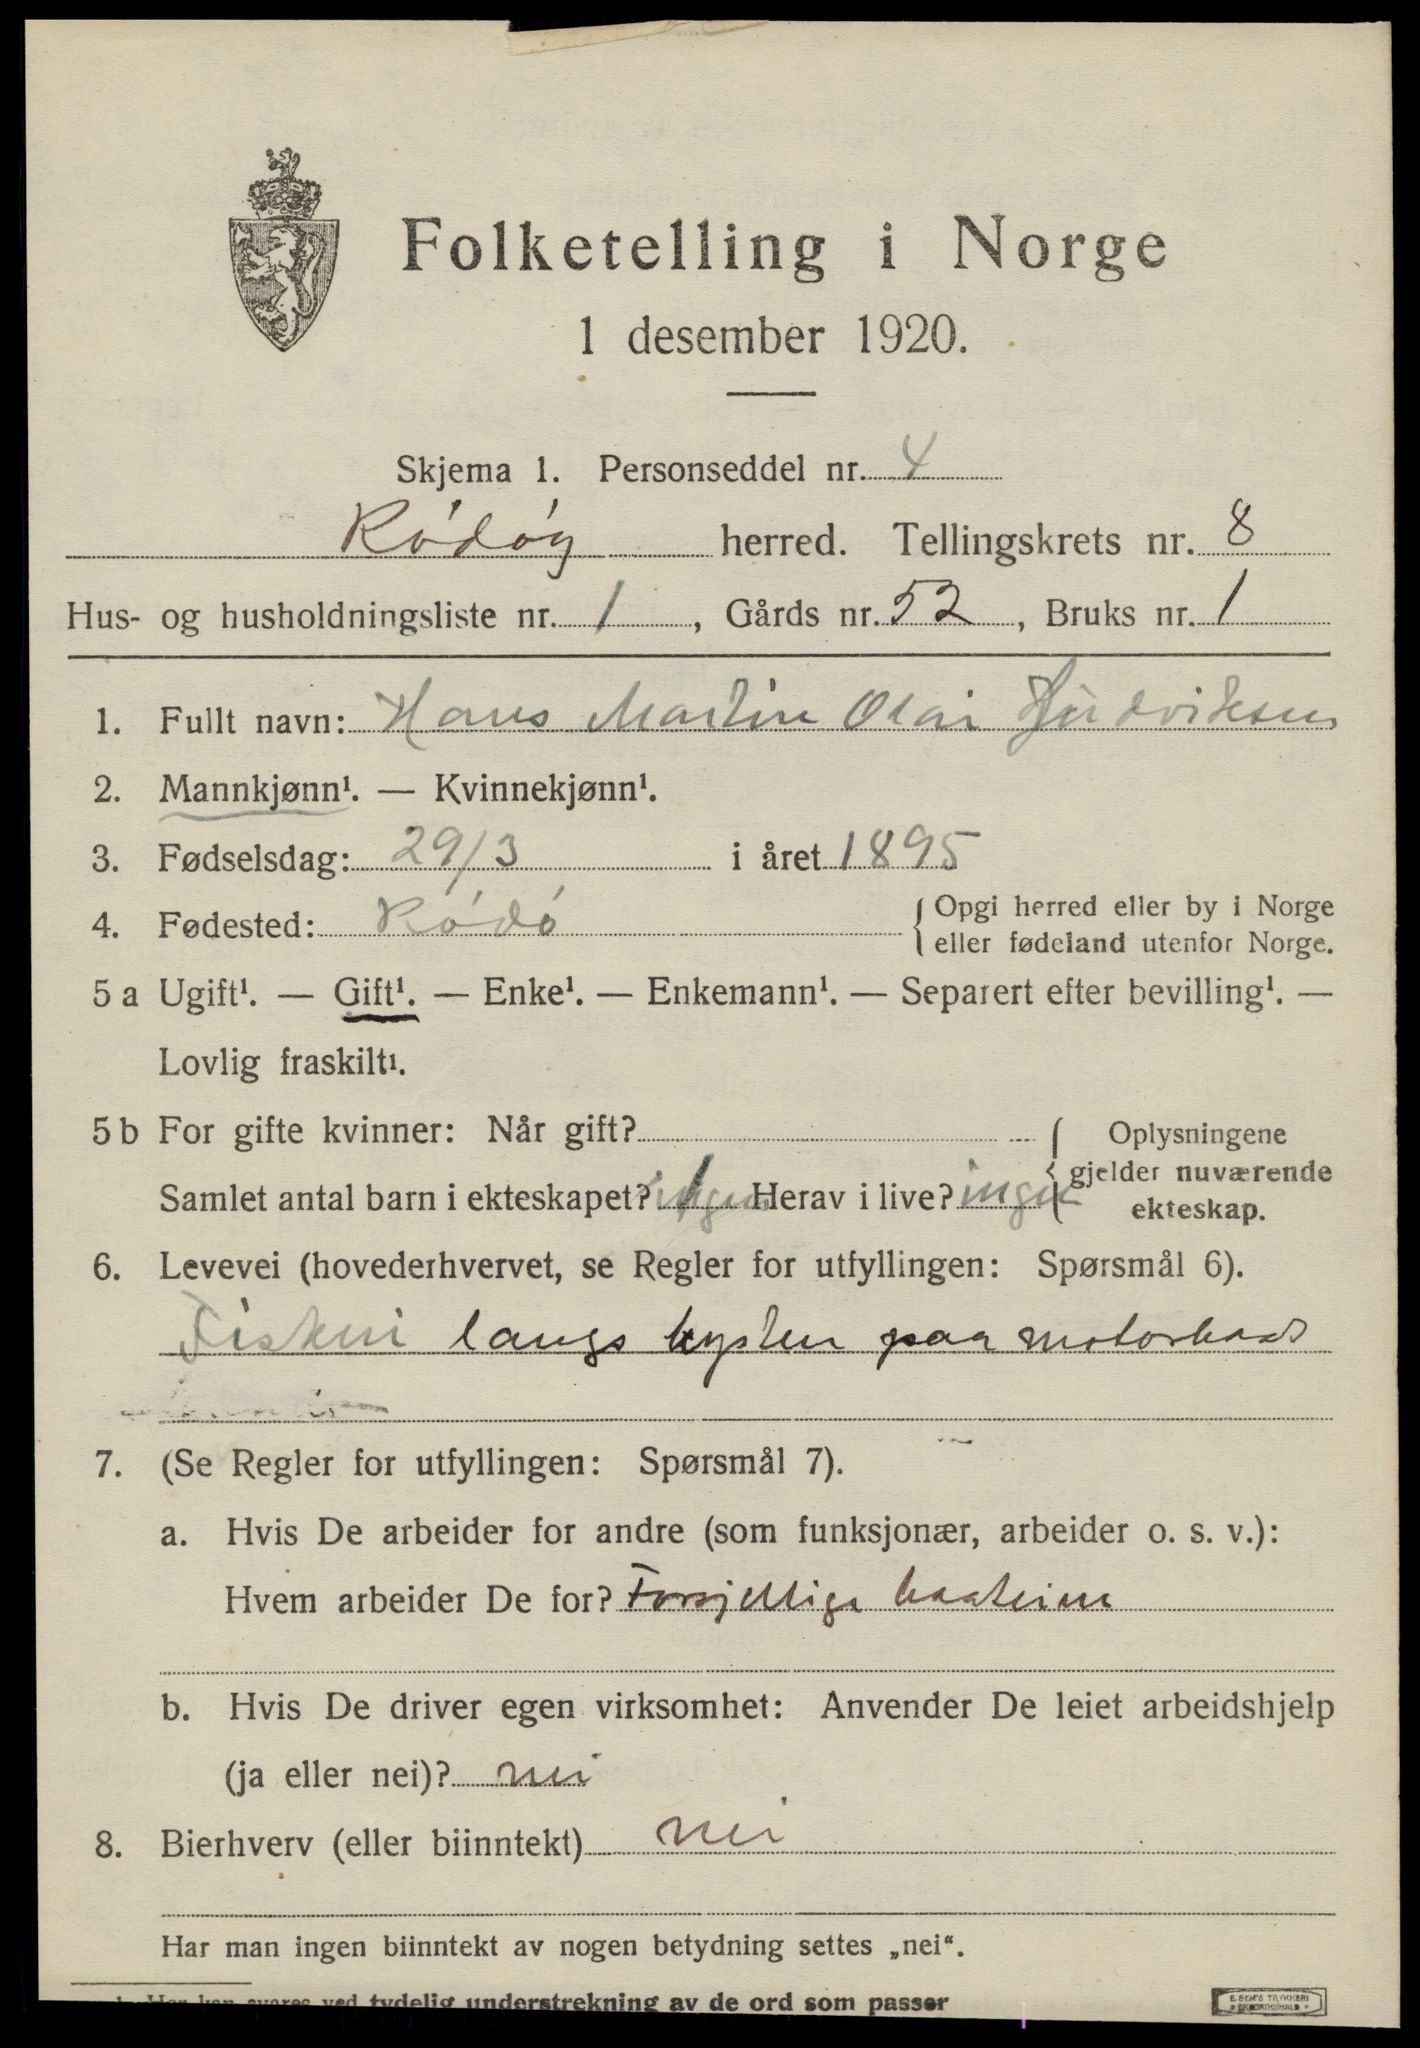 Folketelling i Norge
1 desember 1920.
Skjema 1. Personseddel nr. 4
Rödöy herred. Tellingskrets nr. 8
Hus- og husholdningsliste nr. 1, Gårds nr. 52, Bruks nr. 1
1. Fullt navn: Hans Martin Olai
2. Mannkjønn¹. — Kvinnekjønn¹.
3. Fødselsdag: 29/3 i året 1895
4. Fødested: Rödö { Opgi herred eller by i Norge
eller fødeland utenfor Norge.
5 a Ugift¹. — Gift¹. — Enke¹. — Enkemann¹. — Separert efter bevilling¹. —
Lovlig fraskilt¹.
5 b For gifte kvinner: Når gift? { Oplysningene
gjelder nuværende
Samlet antal barn i ekteskapet? 1 Herav i live? ingen
ekteskap.
6. Levevei (hovederhvervet, se Regler for utfyllingen: Spørsmål 6).
Fiskeri langs kysten paa motorbaad
7. (Se Regler for utfyllingen: Spørsmål 7).
a. Hvis De arbeider for andre (som funksjonær, arbeider o. s. v.):
Hvem arbeider De for? Forsjellige baateiere
b. Hvis De driver egen virksomhet: Anvender De leiet arbeidshjelp
(ja eller nei)? nei
8. Bierhverv (eller biinntekt) nei
Har man ingen biinntekt av nogen betydning settes „nei“.
1. Her kan svares ved tydelig understrekning av de ord som passer
E. SEM'S TRYKKERI
FREDRIKSHALD